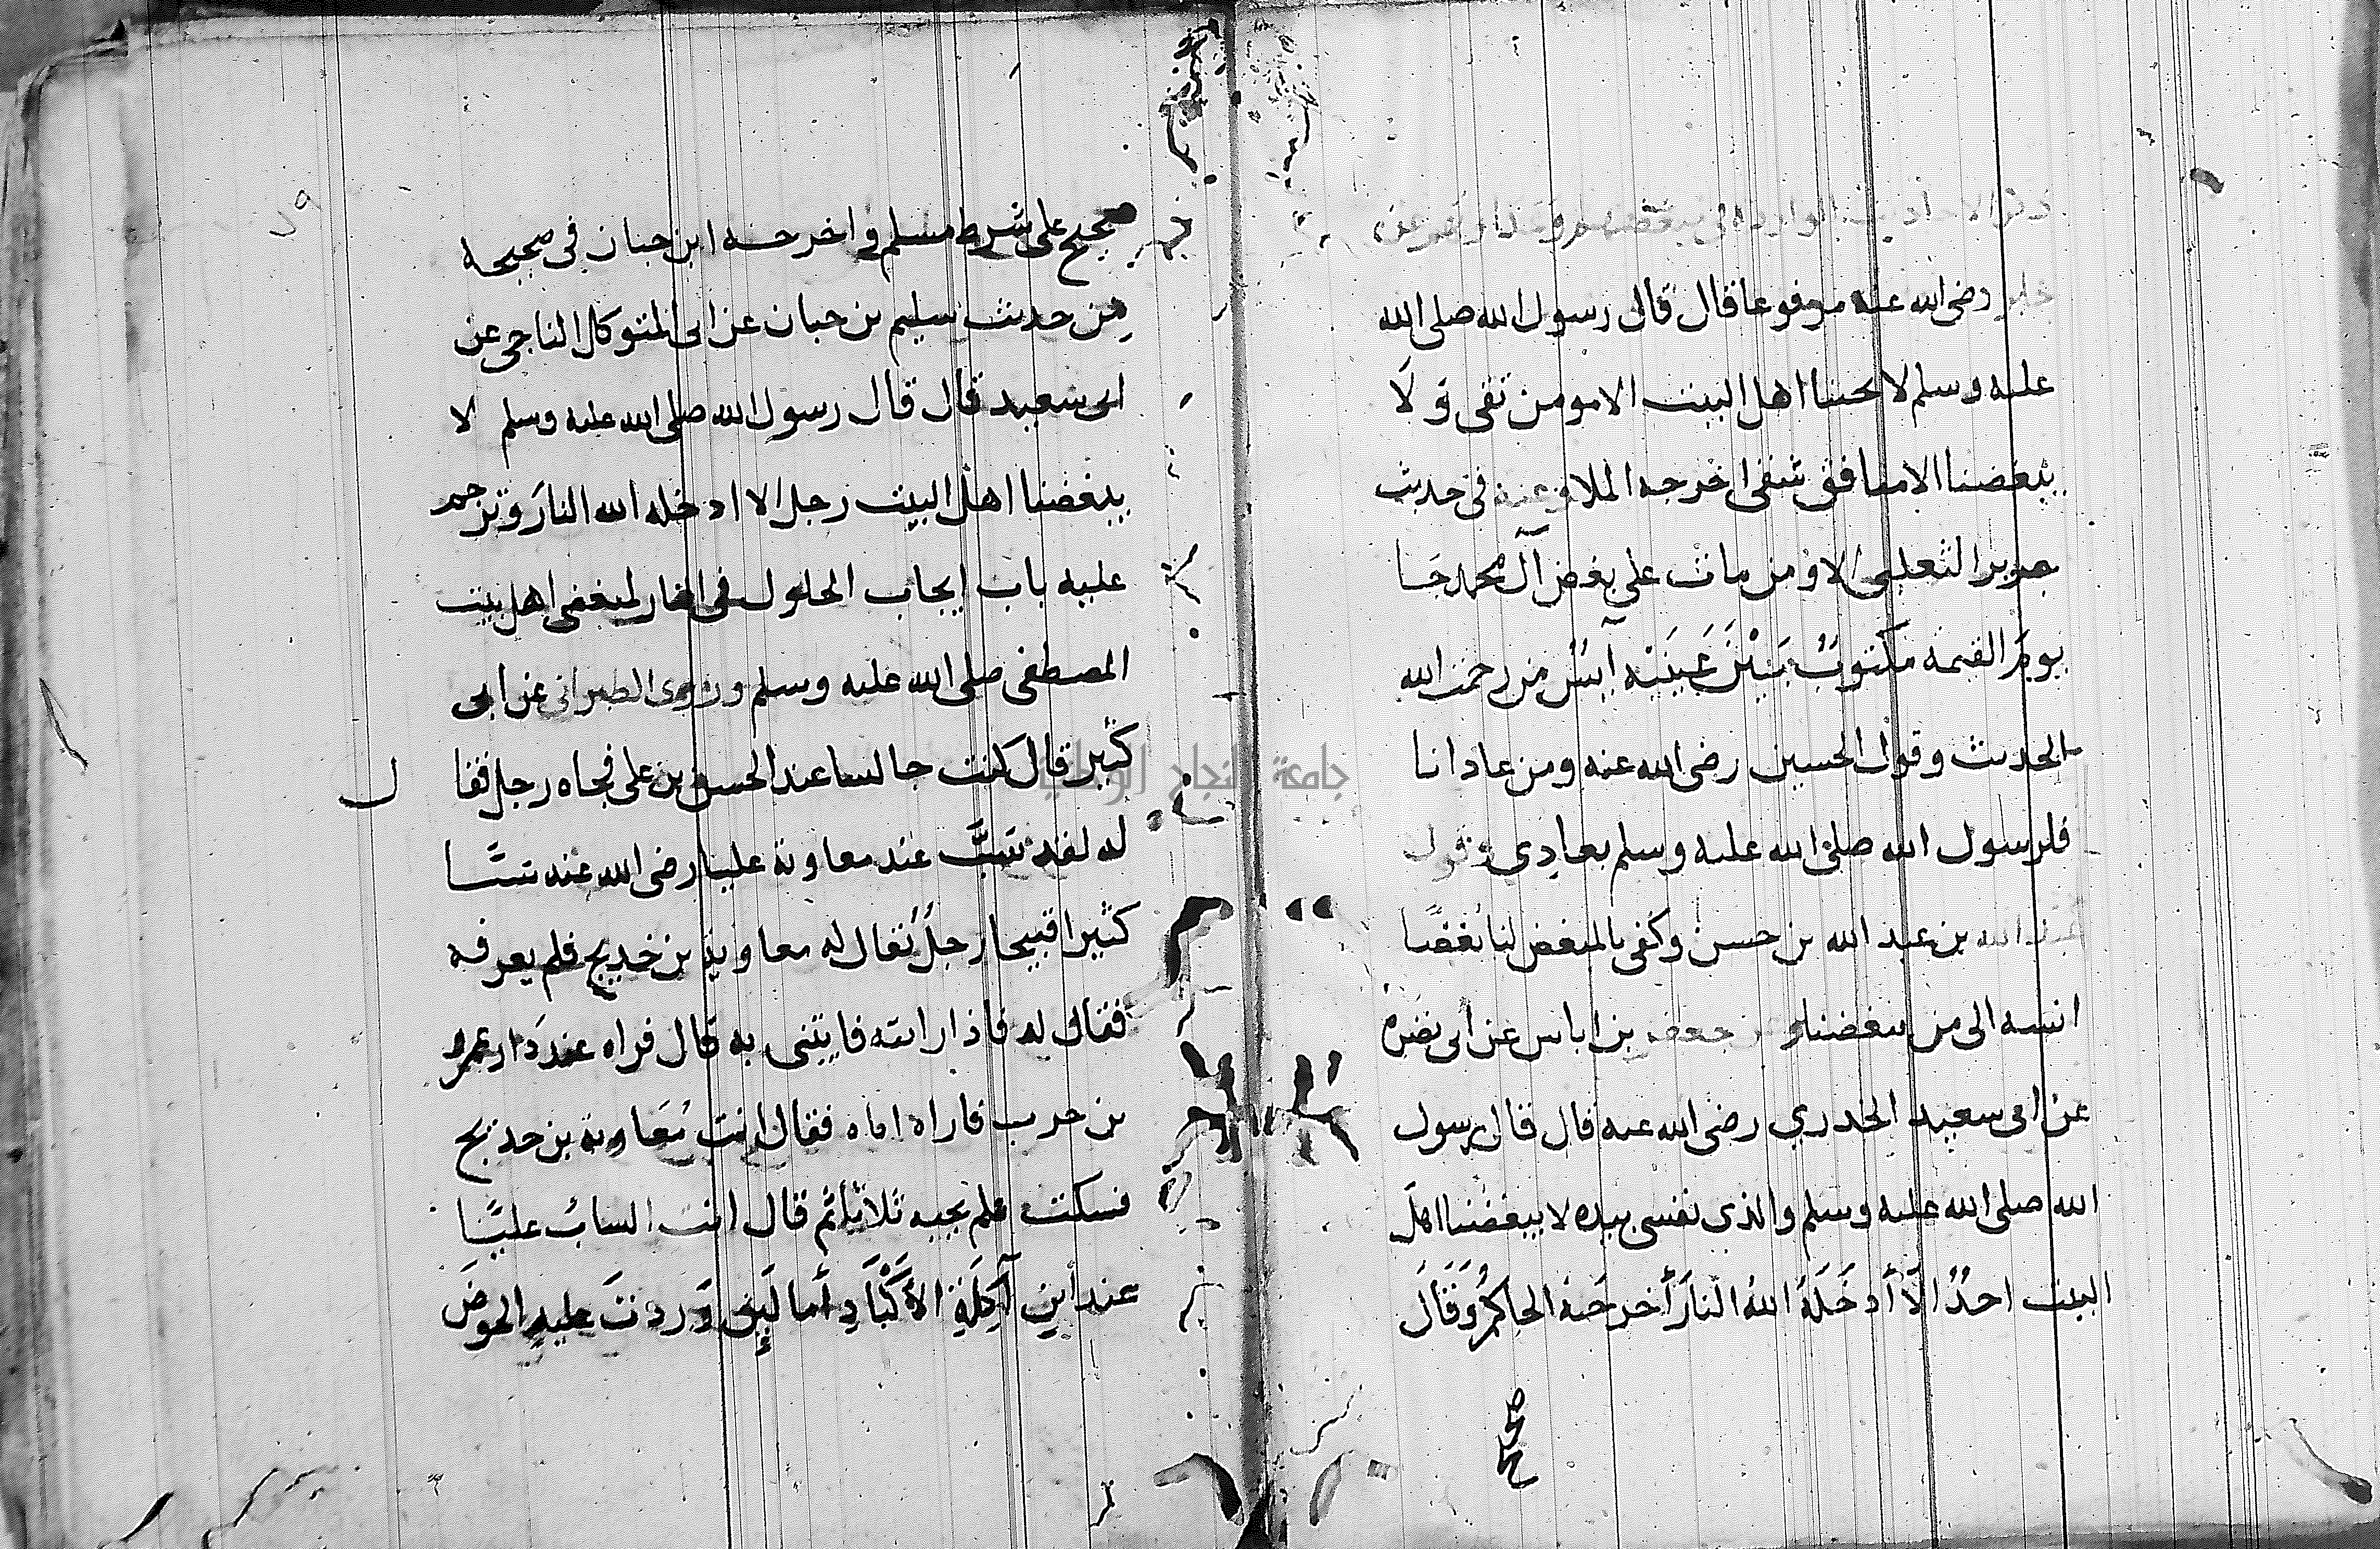 ذكر الاحاديث الواردة في بغضهم
جابر رضى الله عنه مرفوعا قال قال رسول الله صلى الله
عليه وسلم لا يحبنا اهل البيت الا مومن تقى ولا
يبغضنا الا منافق شقى اخرجه الملا وعنه فى حديث
جرير الثعلبى الا ومن مات على بغض آل محمد جا
يوم القيمة مكتوب بين عينيه آيس من رحمت الله
الحديث وقول الحسين رضى الله عنه ومن عادانا
فلرسول الله صلى الله عليه وسلم يعادى وقول
عبد الله بن عبد الله بن حسن وكفى بالمبغض لنا بغضا
انسبه الى من يبغضنا وعن جعفر بن اياس عن ابى نضرة
عن ابى سعيد الخدري رضى الله عنه قال قال رسول
الله صلى الله عليه وسلم والذى نفسى بيده لا يبغضنا اهل
البيت احدٌ الا أدخَلَهُ اللهُ النارَ أخرجَهُ الحاكمُ وقَالَ
صح
٧٩
صحيح على شرط مسلم واخرجه ابن حبان فى صحيحه
من حديث سليم بن حبان عن ابى المتوكل الناجى عن
ابى سعيد قال قال رسول الله صلى الله عليه وسلم لا
يبغضنا اهل البيت رجل الا ادخله الله النار وترجم
عليه باب إيجاب الخلول فى النار لمبغض اهل بيت
المصطفى صلى الله عليه وسلم وروى الطبرانى عن ابى
كثير قال كنت جالسا عند الحسن بن على فجاه رجل فقا ل
له لقد سَبَّ عند معاوية عليا رضى الله عنه سَبَّا
كثيرا قبيحا رجلٌ يُقال له معاوية بن خديج فلم يعرفه
فقال له فاذا رايته فايتنى به قال فراه عند دار عمرو
بن حرب فاراه اياه فقال انت مُعَاوية بن حديج
فسكت فلم يجبه ثلاثا ثم قال انت السابُ عليًا
عند ابنِ آكِلَةِ الأكْبَادِ أما لَئِن وَردتَ عليهِ الحوضَ
جامعة النجاح الوطنية